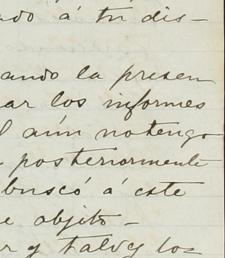 ado á tu dis-
ando la presen
ar los informes
l aún no tengo
posteriormente
buscó á este
e objito-
r y talvez los